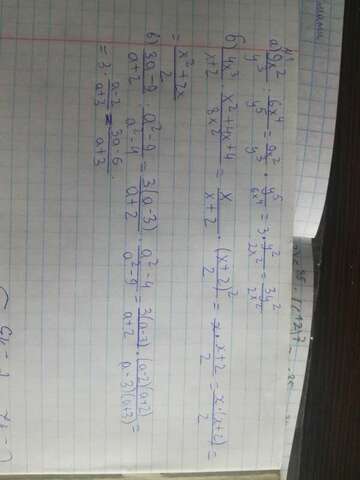 №1
а) 9x²/y³ : 6x⁴/y⁵ = 9x²/y³ · y⁵/6x⁴ = 3 · y²/2x² = 3y²/2x²
б) 4x³/x+2 · x²+4x+4/8x² = x/x+2 · (x+2)²/2 = x · x+2/2 = x·(x+2)/2 =
= x²+2x/2
в) 3a-9/a+2 : a²-9/a²-4 = 3(a-3)/a+2 · a²-4/a²-9 = 3(a-3)/a+2 · (a-2)(a+2)/a-3)(a+3) =
= 3 · a-2/a+3 = 3a-6/a+3